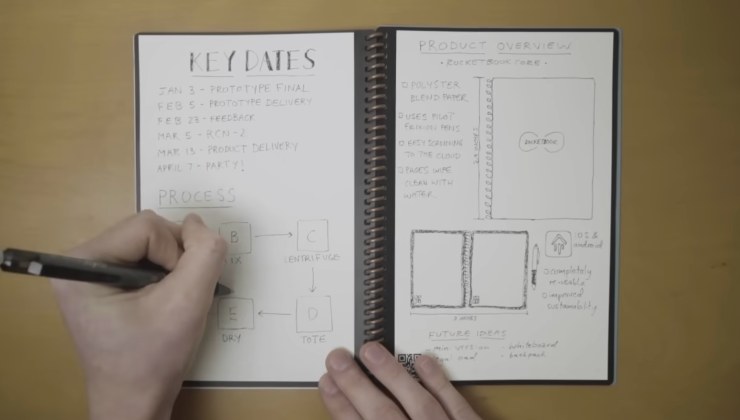 KEY DATES
JAN 3 - PROTOTYPE FINAL
FEB 5 - PROTOTYPE DELIVERY
FEB 23 - FEEDBACK
MAR 5 - RCN-2
MAR 15 - PRODUCT DELIVERY
APRIL 7 - PARTY!
PROCESS
B
C
CENTRIFUGE
E
D
DRY
TOTE
PRODUCT OVERVIEW
· ROCKETBOOK CORE ·
POLYSTER
BLEND PAPER
USES PILOT
FRIXION PENS
EASY
TO THE CLOUD
PAGES WIPE
CLEAN WITH
WATER
ROCKETBOOK
IOS &
android
completely
reusable
improved
sustainability
FUTURE IDEAS
- whiteboard
- backpack